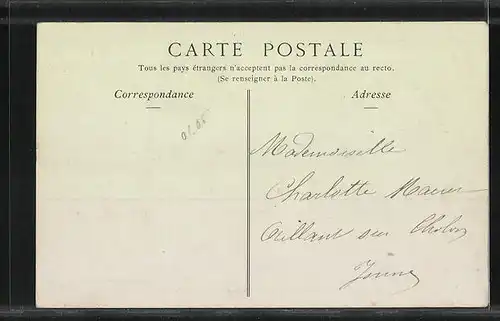 CARTE POSTALE
Tous les pays étrangers n'acceptent pas la correspondance au recto.
(Se renseigner à la Poste).
Correspondance
Adresse
Mademoiselle
Charlotte
Aillant sur Tholon
Yonne